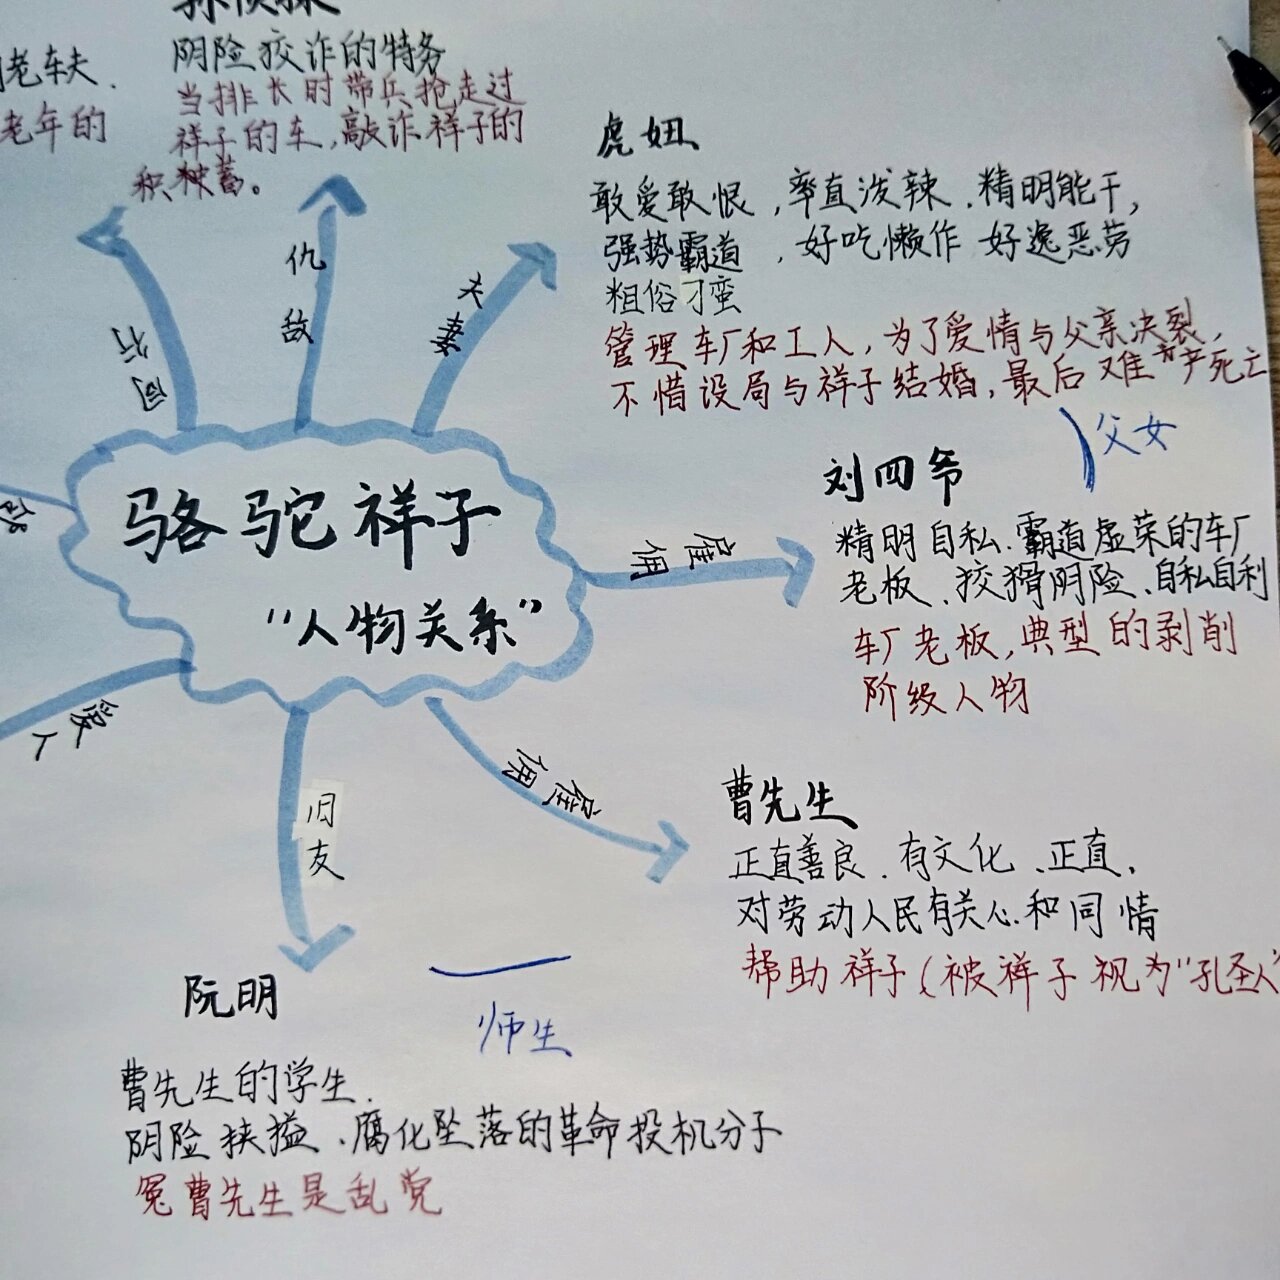 孙侦探
阴险狡诈的特务
当排长时带兵抢走过
祥子的车,敲诈祥子的
积蓄。
老车夫.
老年的
虎妞
敢爱敢恨,率直泼辣.精明能干,
强势霸道,好吃懒作 好逸恶劳
粗俗刁蛮
管理车厂和工人,为了爱情与父亲决裂,
不惜设局与祥子结婚,最后难产死亡
父女
同行
仇敌
夫妻
骆驼祥子
“人物关系”
雇佣
刘四爷
精明自私.霸道虚荣的车厂
老板、狡猾阴险、自私自利
车厂老板,典型的剥削
阶级人物
爱人
旧友
雇佣
曹先生
正直善良.有文化、正直,
对劳动人民有关心和同情
帮助祥子(被祥子视为“孔圣人”
师生
阮明
曹先生的学生.
阴险狭隘、腐化坠落的革命投机分子
冤曹先生是乱党